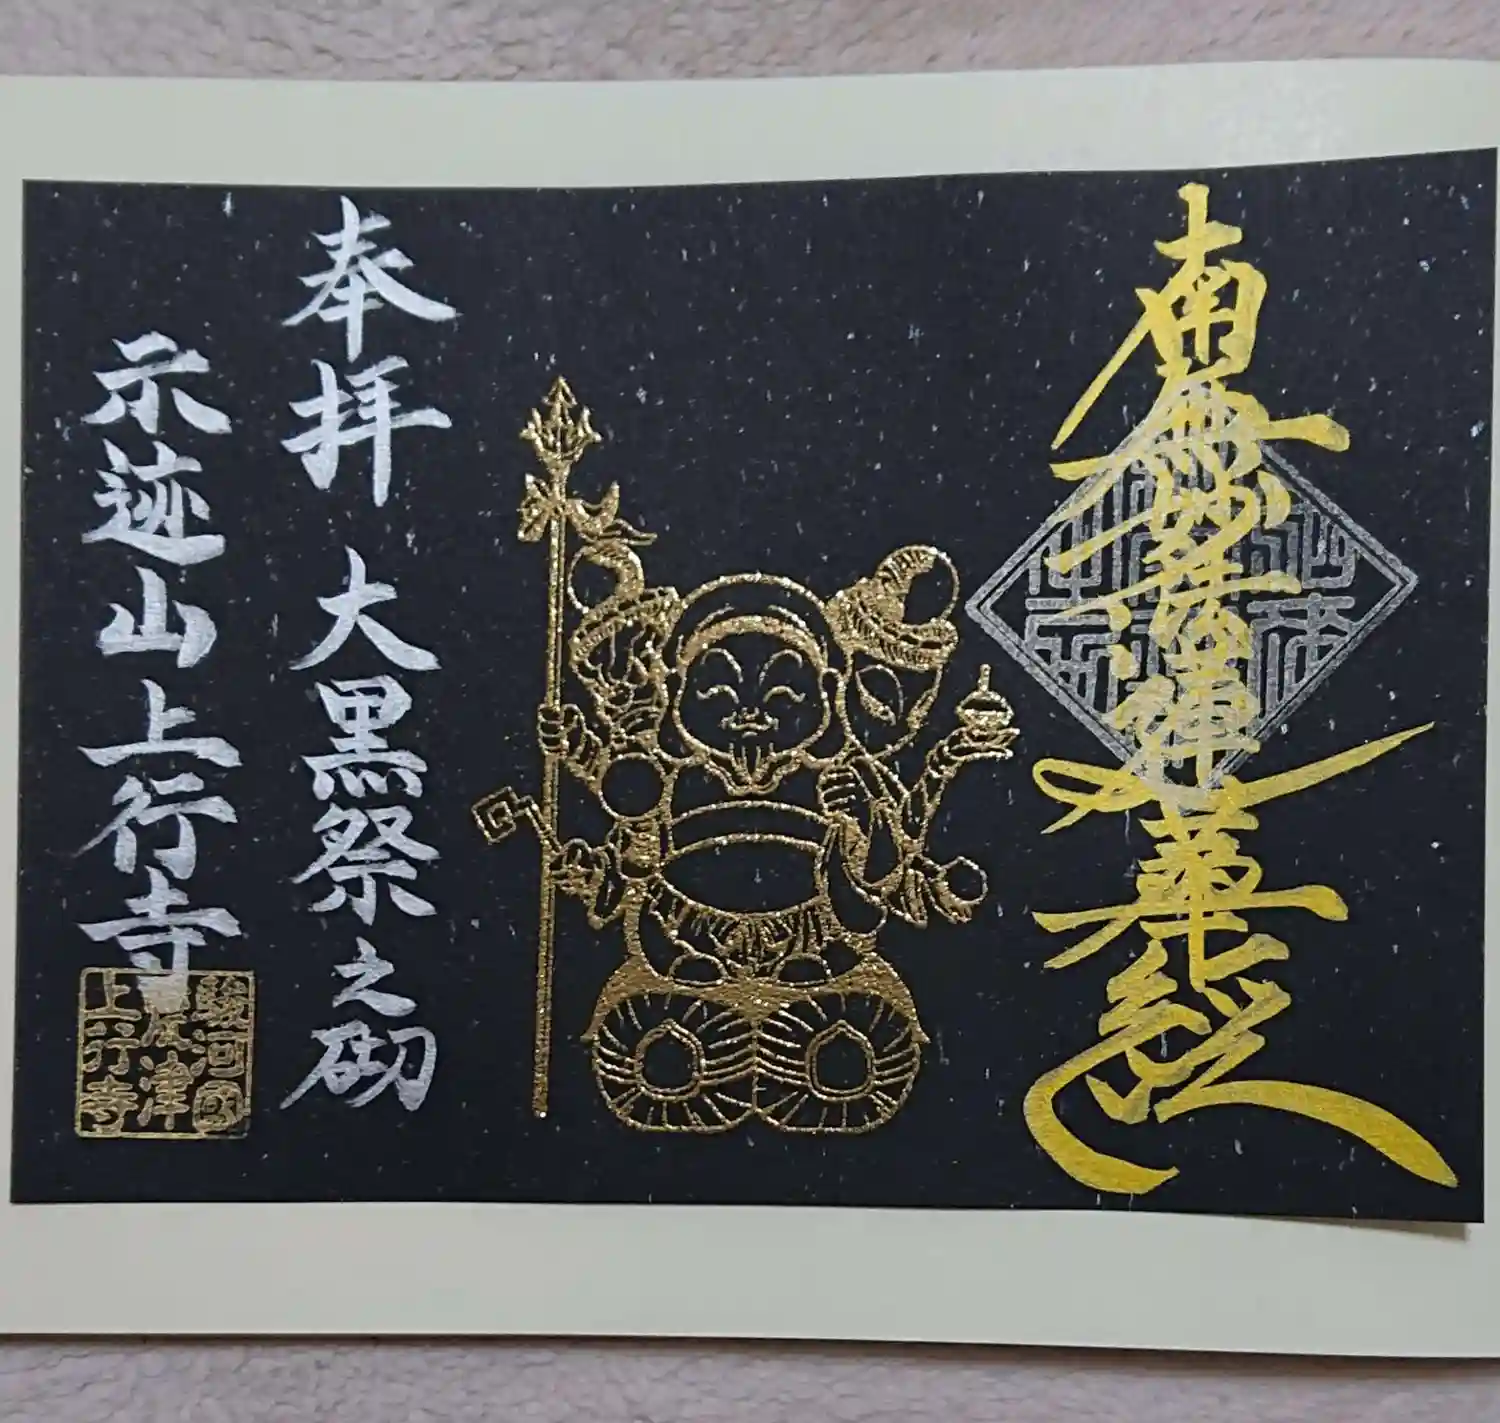 南無妙法蓮華経
奉拝 大黒祭之砌
示迹山上行寺
駿河國
上行寺